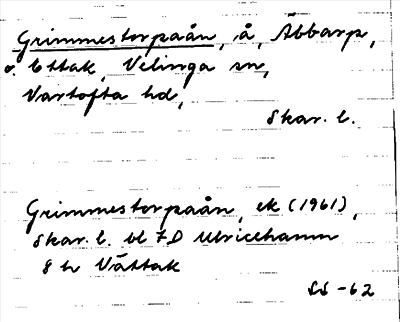 Grimmestorpaån, å, Äbbarp,
v. Ettak, Velinga sn,
Vartofta hd,
Skar. l.
Grimmestorpaån, ek (1961),
Skar. l. bl 7D Ulricehamn
8 h Vättak
SS -62